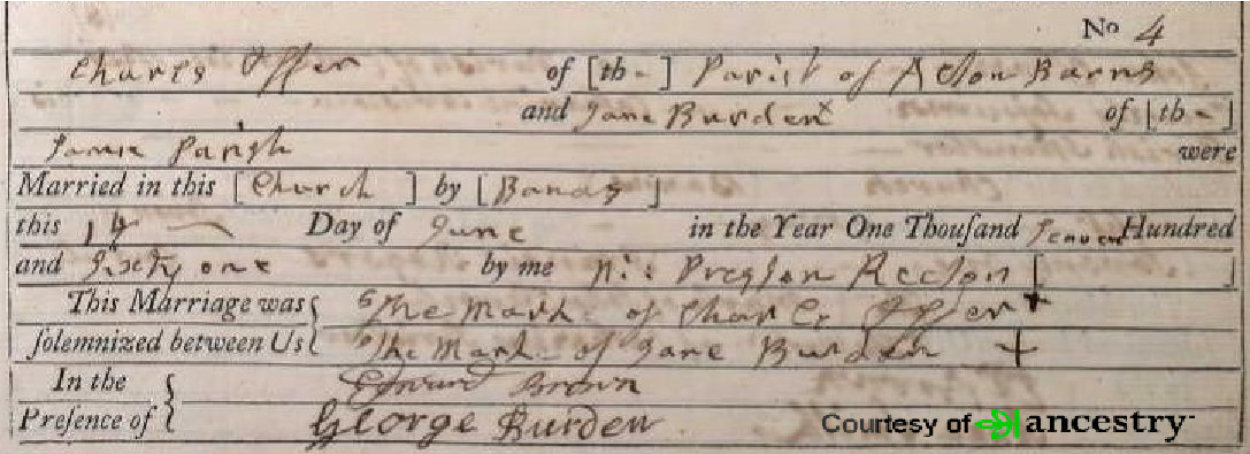 No 4
Charles Offer of [th- ] Parish of Acton Barns
and Jane Burden x of [th- ]
Same Parish were
Married in this [Church ] by [Banns ]
this 14 Day of June in the Year One Thouſand Seaven Hundred
and Sixty one by me Preston Rector [ ]
This Marriage was { The Mark of Charles Offer +
ſolemnized between Us { The Mark of Jane Burden +
In the { Edward Brown
Preſence of { George Burden
Courtesy of ancestry